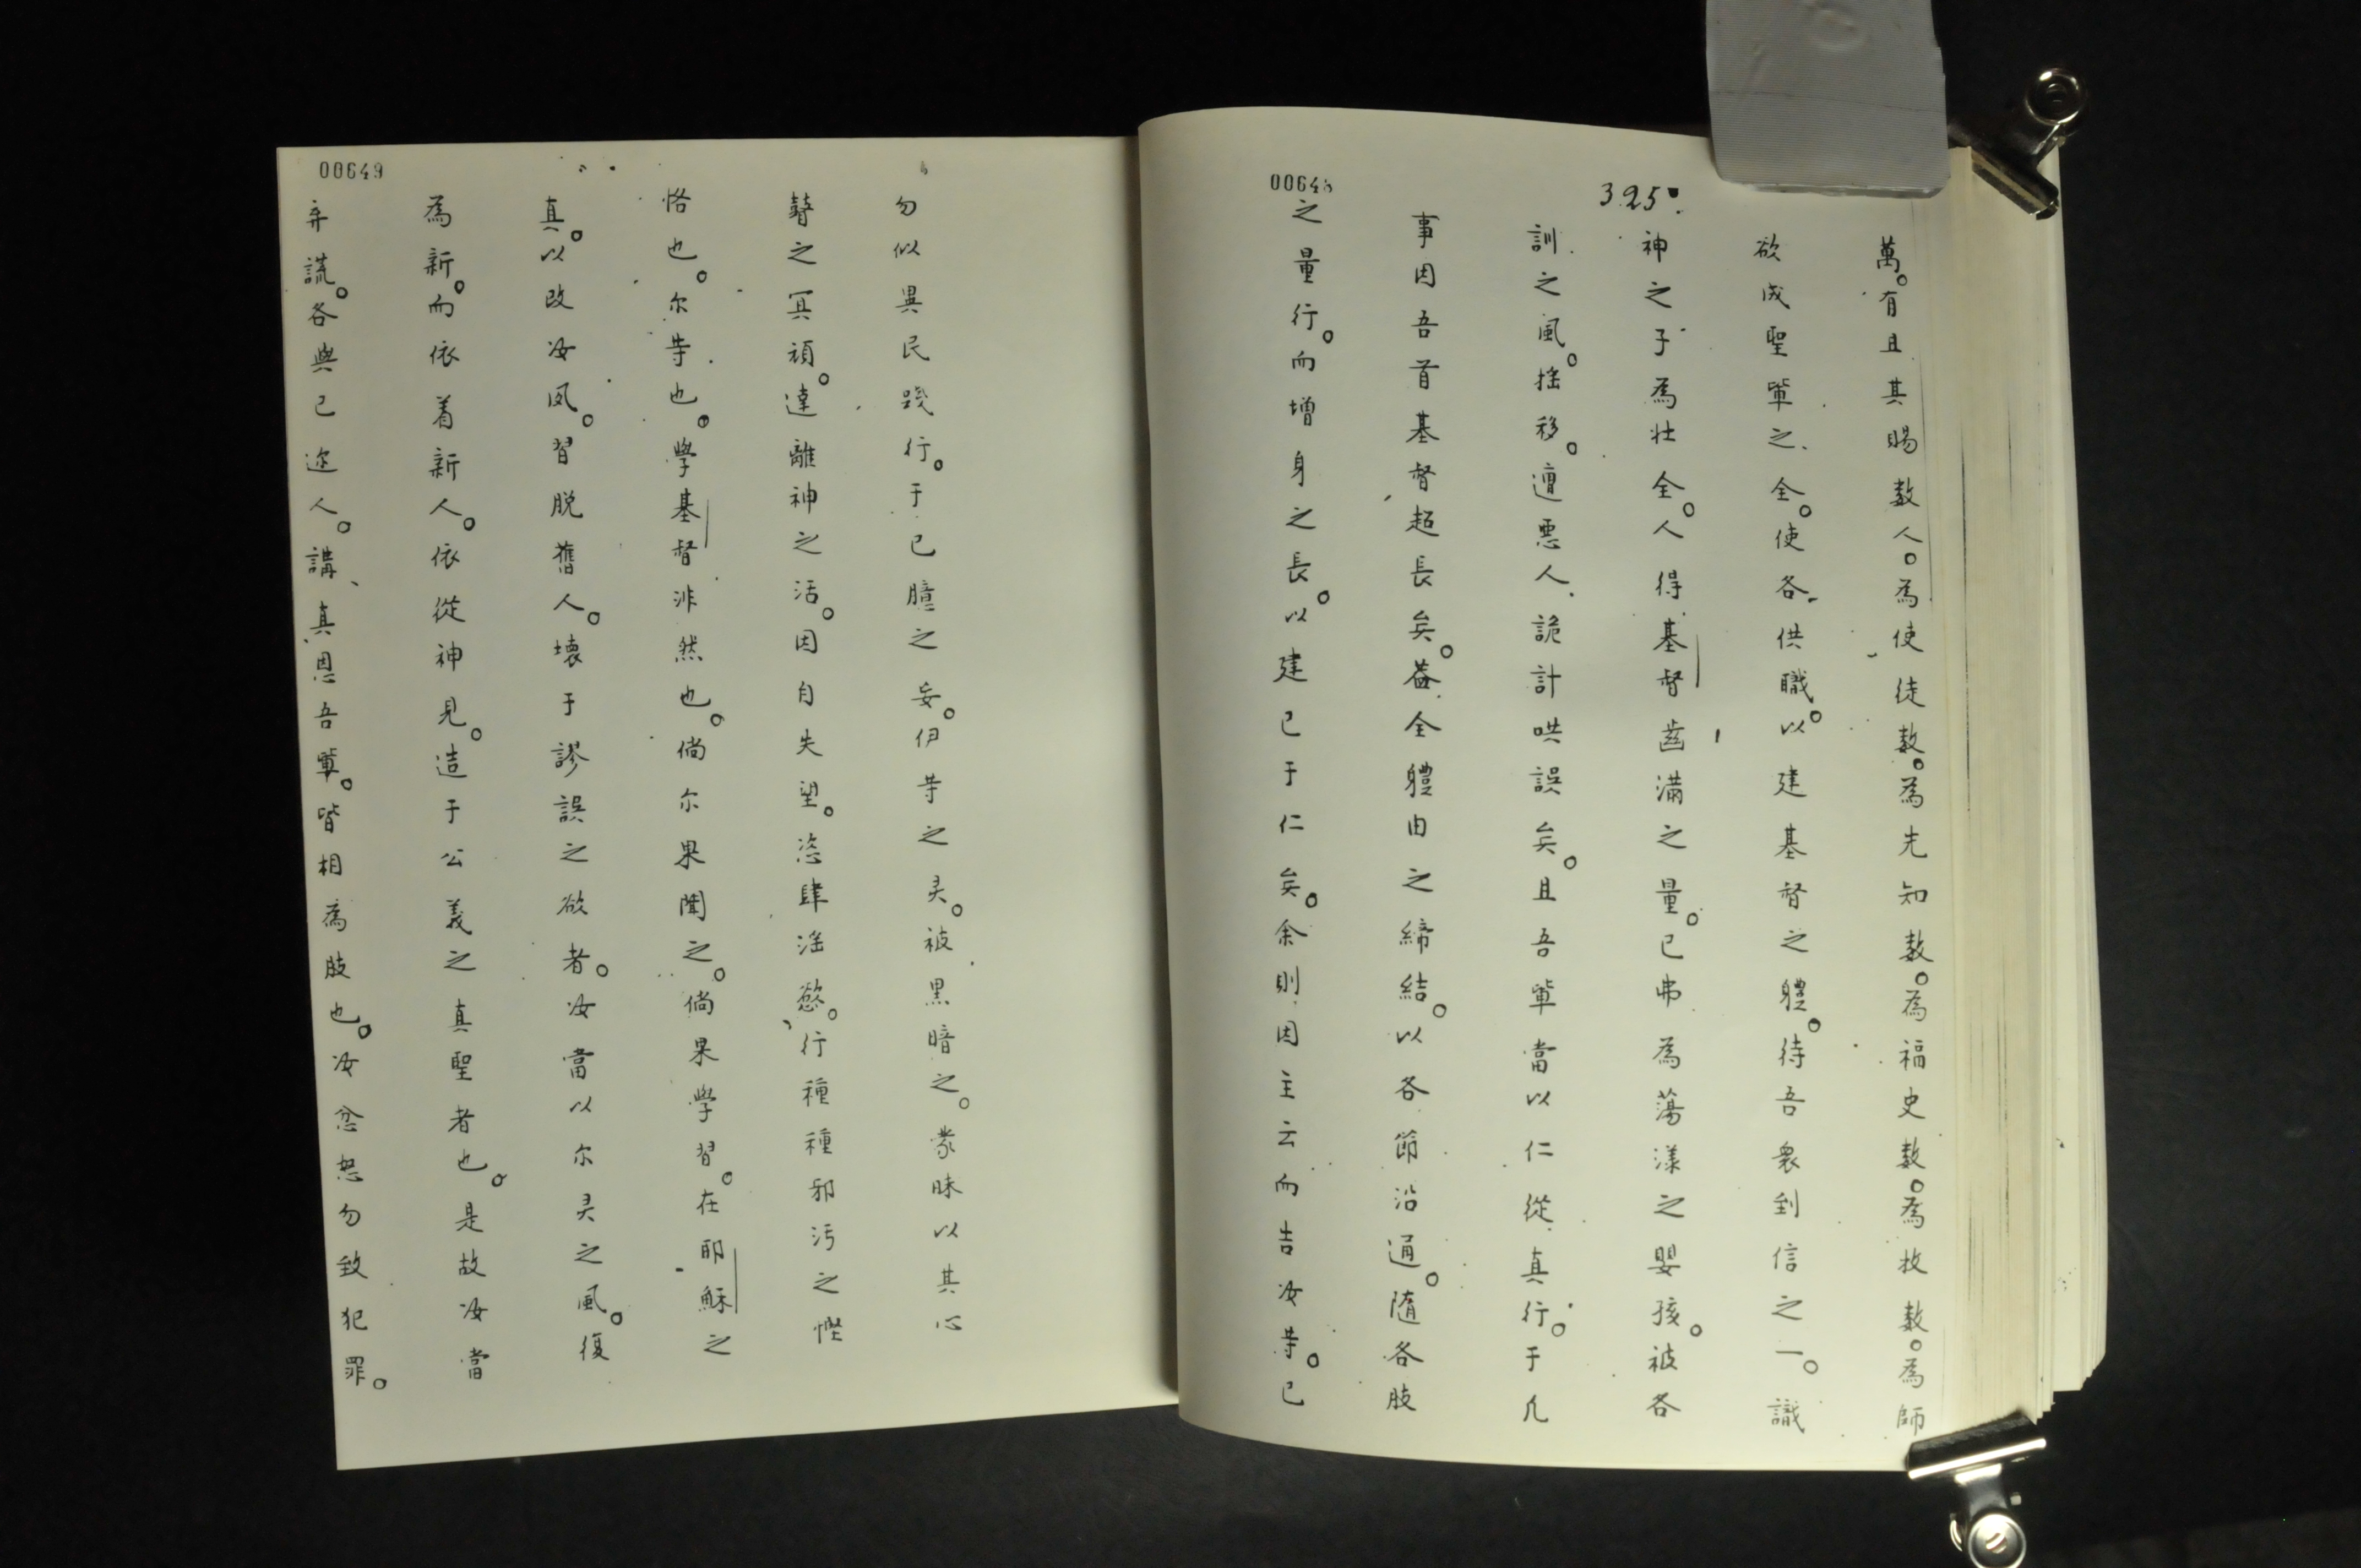 00648
325
萬。有且其賜数人。為使徒数。為先知数。為福史数。為牧数。為師
欲成聖軰之全。使各供職。以建基督之體。待吾衆到信之一。識
神之子為壮全。人得基督齒满之量。已弗為蕩漾之嬰孩。被各
訓之風。摇移。遭悪人詭計哄誤矣。且吾軰當以仁從真行。于凢
事因吾首基督超長矣。葢全體由之締結。以各節沿通。随各肢
之量行。而增身之長。以建已于仁矣。余則因主云而告汝䓁。已
00649
勿似異民践行。于已臆之妄。伊䓁之灵。被黒暗之。蒙昧以其心
瞽之冥頑。達離神之活。因自失望。恣肆淫慾。行種種邪污之慳
悋也。尔䓁也。學基督非然也。倘尔果聞之。倘果學習。在耶穌之
真。以改汝夙。習脱舊人。壊于謬誤之欲者。汝當以尔灵之風。復
為新。而依着新人。依從神見。造于公義之真聖者也。是故汝當
弃謊。各與已迩人。講真。思吾軰。皆相為肢也。汝忿怒勿致犯罪。